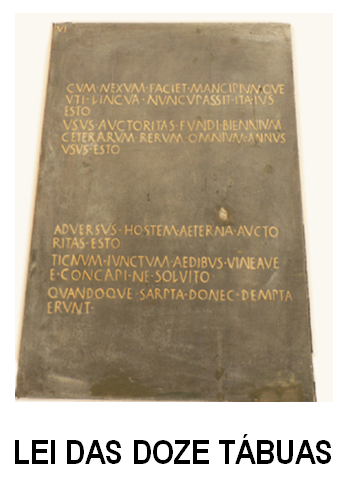 VI
CVM NEXVM FACIET MANCIPIVMQVE
VTI LINGVA NVNCVPASSIT ITA IVS
ESTO
VSVS·AVCTORITAS·FVNDI·BIENNIVM
CETERARVM·RERVM·OMNIVM·ANNVS
VSVS·ESTO
ADVERSVS·HOSTEM·AETERNA·AVCTO
RITAS·ESTO
TIGNVM·IVNCTVM·AEDIBVS·VINEAVE
E·CONCAPI·NE·SOLVITO
QVANDOQVE·SARPTA·DONEC·DEMPTA
ERVNT·
LEI DAS DOZE TÁBUAS